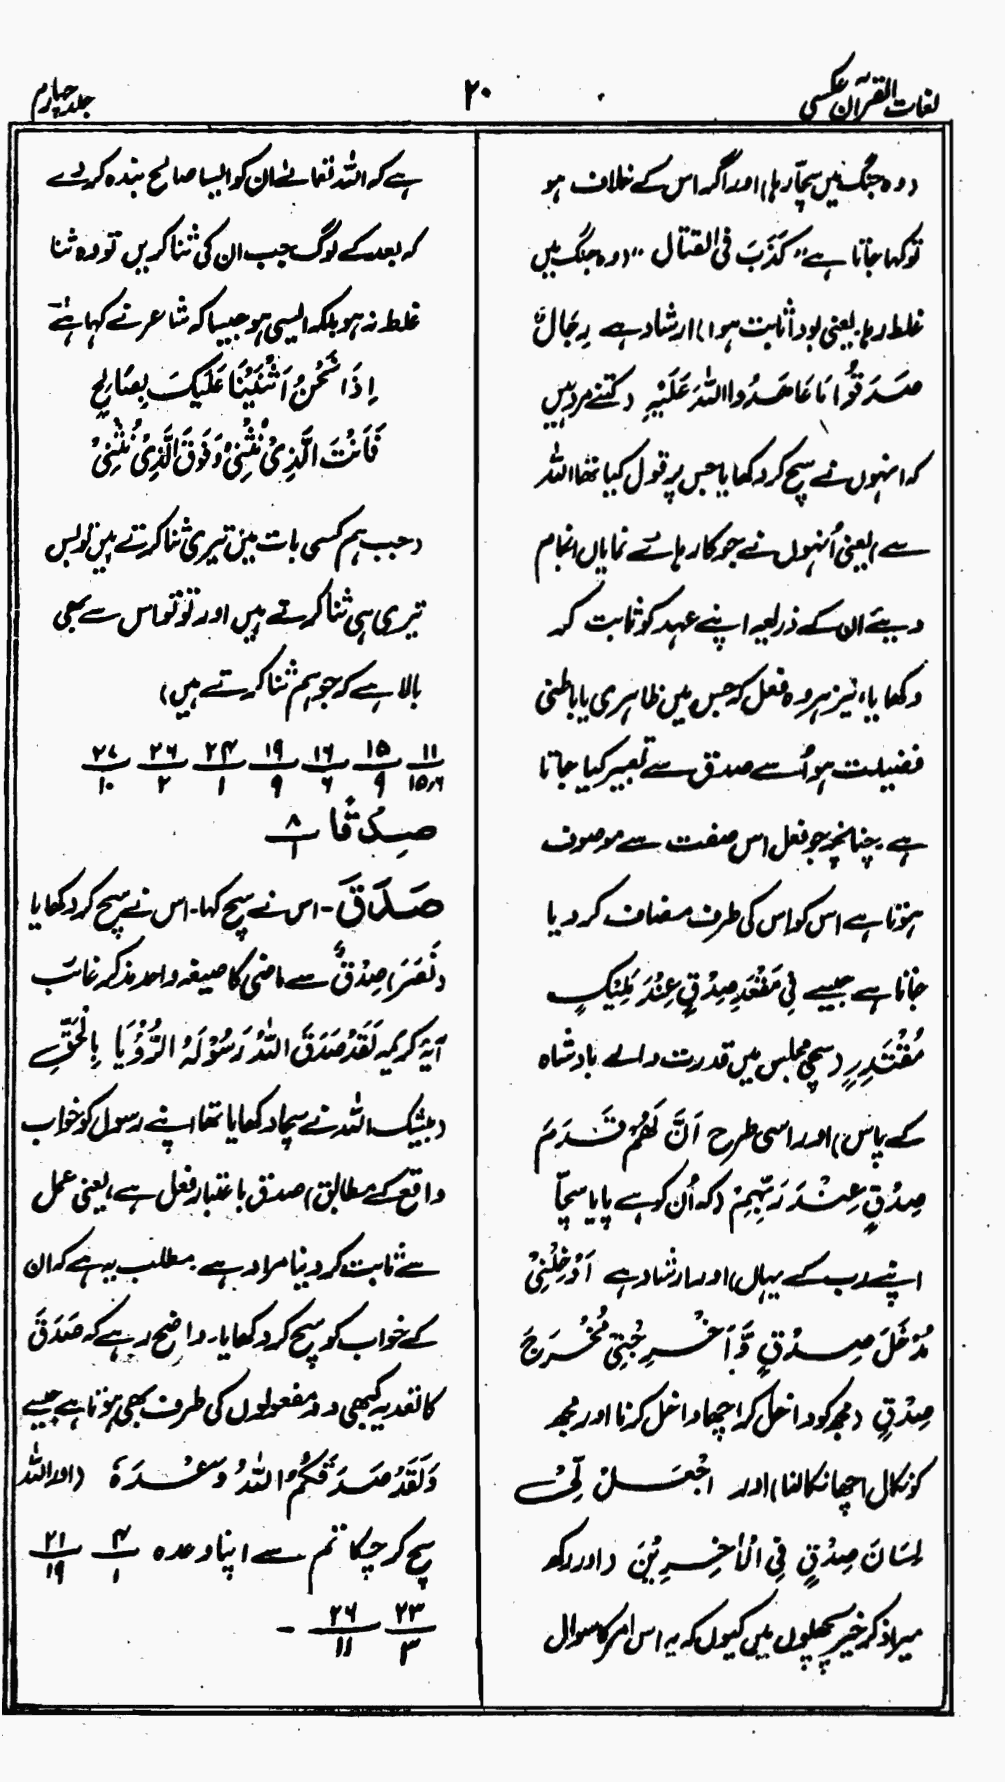 لغات القرآن عکسی
۲۰
جلد چہارم
(وہ جنگ میں سچّا رہا) اور اگر اس کے خلاف ہو
تو کہا جاتا ہے "کَذَبَ فی القتال" (وہ جنگ میں
غلط رہا۔ یعنی بودا ثابت ہوا) ارشاد ہے رِجَالٌ
صَدَقُوْا مَا عَاهَدُوا اللّٰهَ عَلَيْهِ (کتنے مرد ہیں
کہ انہوں نے سچ کر دکھایا جس پر قول کیا تھا اللہ
سے) یعنی اُنہوں نے جو کارہائے نمایاں انجام
دیئے ان کے ذریعہ اپنے عہد کو ثابت کر
دکھایا، نیز ہر وہ فعل کہ جس میں ظاہری یا باطنی
فضیلت ہو اُسے صدق سے تعبیر کیا جاتا
ہے۔ چنانچہ جو فعل اس صفت سے موصوف
ہوتا ہے اس کو اس کی طرف مضاف کر دیا
جاتا ہے جیسے فِي مَقْعَدِ صِدْقٍ عِنْدَ مَلِيْكٍ
مُقْتَدِرٍ (سچی مجلس میں قدرت والے بادشاہ
کے پاس) اور اسی طرح اَنَّ لَهُمْ قَدَمَ
صِدْقٍ عِنْدَ رَبِّهِمْ (کہ اُن کو ہے پایا سچّا
اپنے رب کے یہاں) اور ارشاد ہے اَدْخِلْنِيْ
مُدْخَلَ صِدْقٍ وَّاَخْرِجْنِيْ مُخْرَجَ
صِدْقٍ (مجھ کو داخل کر اچھا داخل کرنا اور مجھ
کو نکال اچھا نکالنا) اور اجْعَلْ لِّيْ
لِسَانَ صِدْقٍ فِي الْاٰخِرِيْنَ (اور رکھ
میرا ذکر خیر پچھلوں میں) کیوں کہ یہ اس امر کا سوال
ہے کہ اللہ تعالےٰ ان کو ایسا صالح بندہ کر دے
کہ بعد کے لوگ جب ان کی ثنا کریں تو وہ ثنا
غلط نہ ہو بلکہ ایسی ہو جیسا کہ شاعر نے کہا ہے
اِذَا نَحْنُ اَثْنَيْنَا عَلَيْكَ بِصَالِحٍ
فَاَنْتَ الَّذِيْ نُثْنِيْ وَفَوْقَ الَّذِيْ نُثْنِيْ
(جب ہم کسی بات میں تیری ثنا کرتے ہیں تو بس
تیری ہی ثنا کرتے ہیں اور تو تو اس سے بھی
بالا ہے کہ جو ہم ثنا کرتے ہیں)
۱۱/۱۵،۶ ۱۵/۹ ۱۶/۶ ۱۹/۹ ۲۴/۱ ۲۶/۲ ۲۷/۱۰
صِدْقًا ۸/۱
صَدَقَ۔ اس نے سچ کہا۔ اس نے سچ کر دکھایا
(نَصَرَ) صِدْقٌ سے ماضی کا صیغہ واحد مذکر غائب
آیۂ کریمہ لَقَدْ صَدَقَ اللّٰهُ رَسُوْلَهُ الرُّؤْيَا بِالْحَقِّ
(بیشک اللہ نے سچا دکھایا تھا اپنے رسول کو خواب
واقع کے مطابق) صدق باعتبار فعل ہے، یعنی عمل
سے ثابت کر دینا مراد ہے۔ مطلب یہ ہے کہ ان
کے خواب کو سچ کر دکھایا۔ واضح رہے کہ صَدَقَ
کا تعدیہ کبھی دو مفعولوں کی طرف بھی ہوتا ہے جیسے
وَلَقَدْ صَدَقَكُمُ اللّٰهُ وَعْدَهٗ (اور اللہ
سچ کر چکا تم سے اپنا وعدہ ۴/۱ ۲۱/۱۹
۲۳/۳ ۲۶/۱۱ -